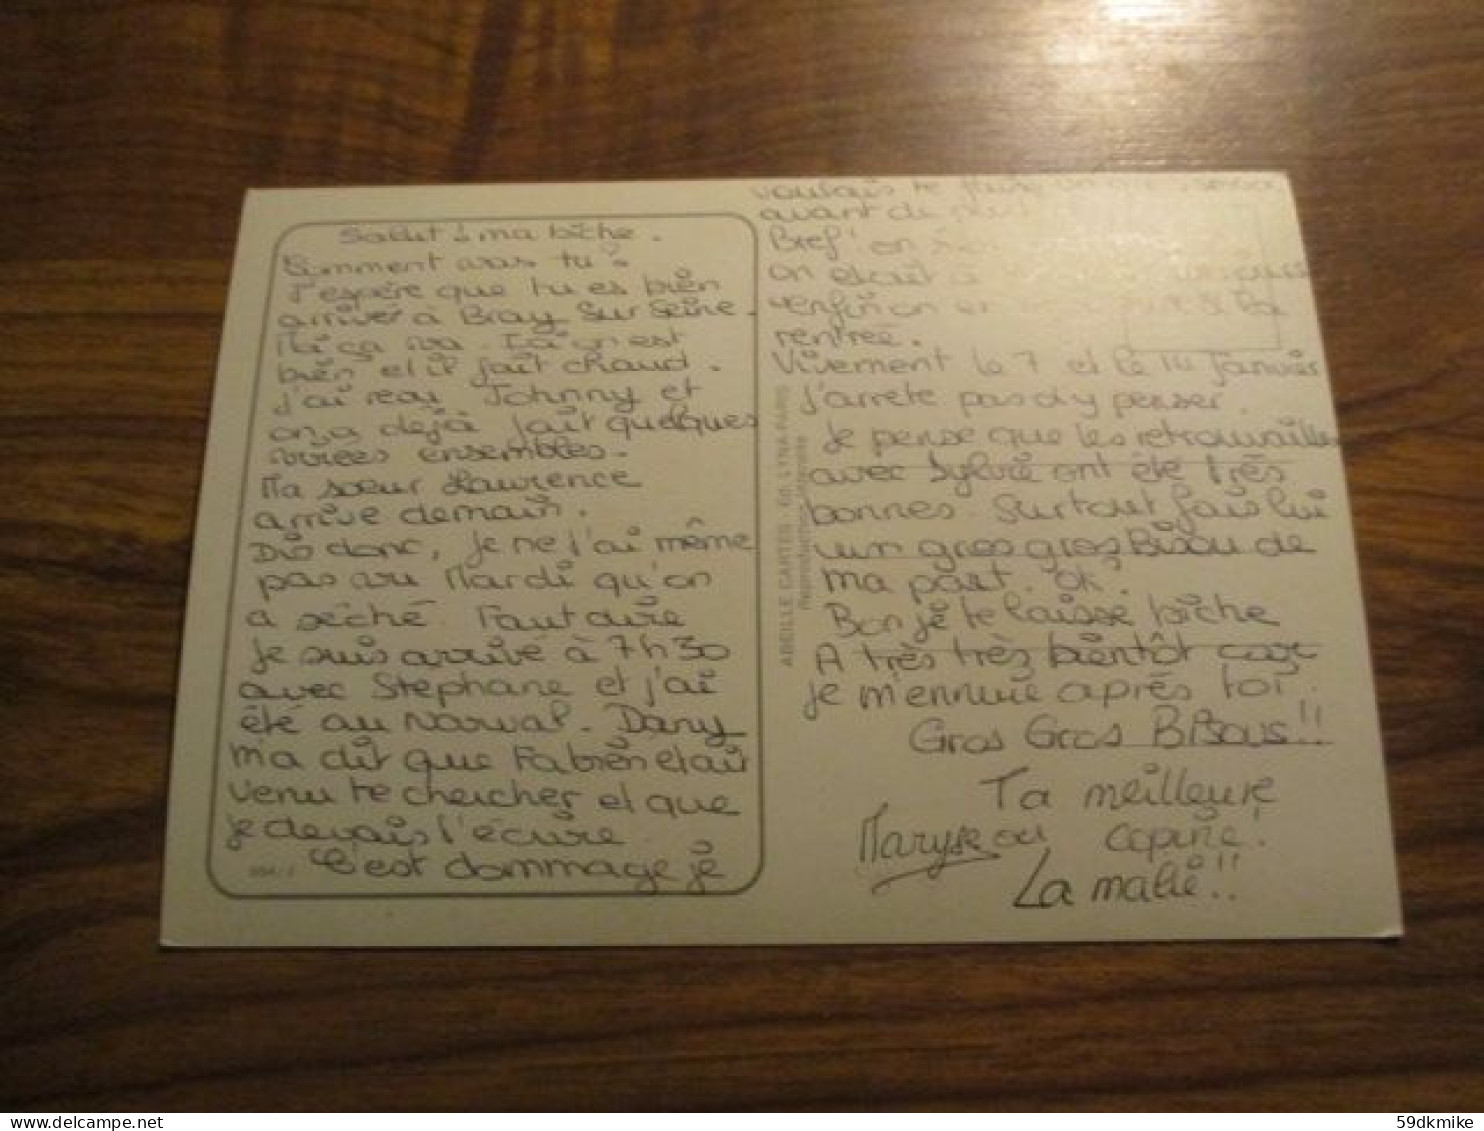 Salut ma biche.
Comment vas tu?
J'espère que tu es bien
arrivée à Bray Sur Seine.
Moi ça va. Ici on est
bien et il fait chaud.
J'ai revu Johnny et
on a déjà fait quelques
virées ensembles.
Ma soeur Laurence
arrive demain.
Dis donc, je ne t'ai même
pas vu Mardi qu'on
a séché. Faut dire
je suis arrivé à 7h30
avec Stéphane et j'ai
été au Narval. Dany
m'a dit que Fabien était
venu te chercher et que
je devais t'écrire
C'est dommage je
994/2
voulais te faire un
avant de
Bref on
on était
enfin on la
rentrée.
Vivement le 7 et le 14 Janvier
J'arrete pas d'y penser.
Je pense que les retrouvailles
avec Sylvie ont été très
bonnes. Surtout fais lui
un gros gros Bisou de
ma part. OK.
Bon je te laisse biche
A très très bientôt car
je m'ennuie après toi.
Gros Gros Bisous!!
Ta meilleure
Maryse ou copine!
La malie!!
ABEILLE CARTES - éd. LYNA-PARIS
Reproduction interdite
59dkmike